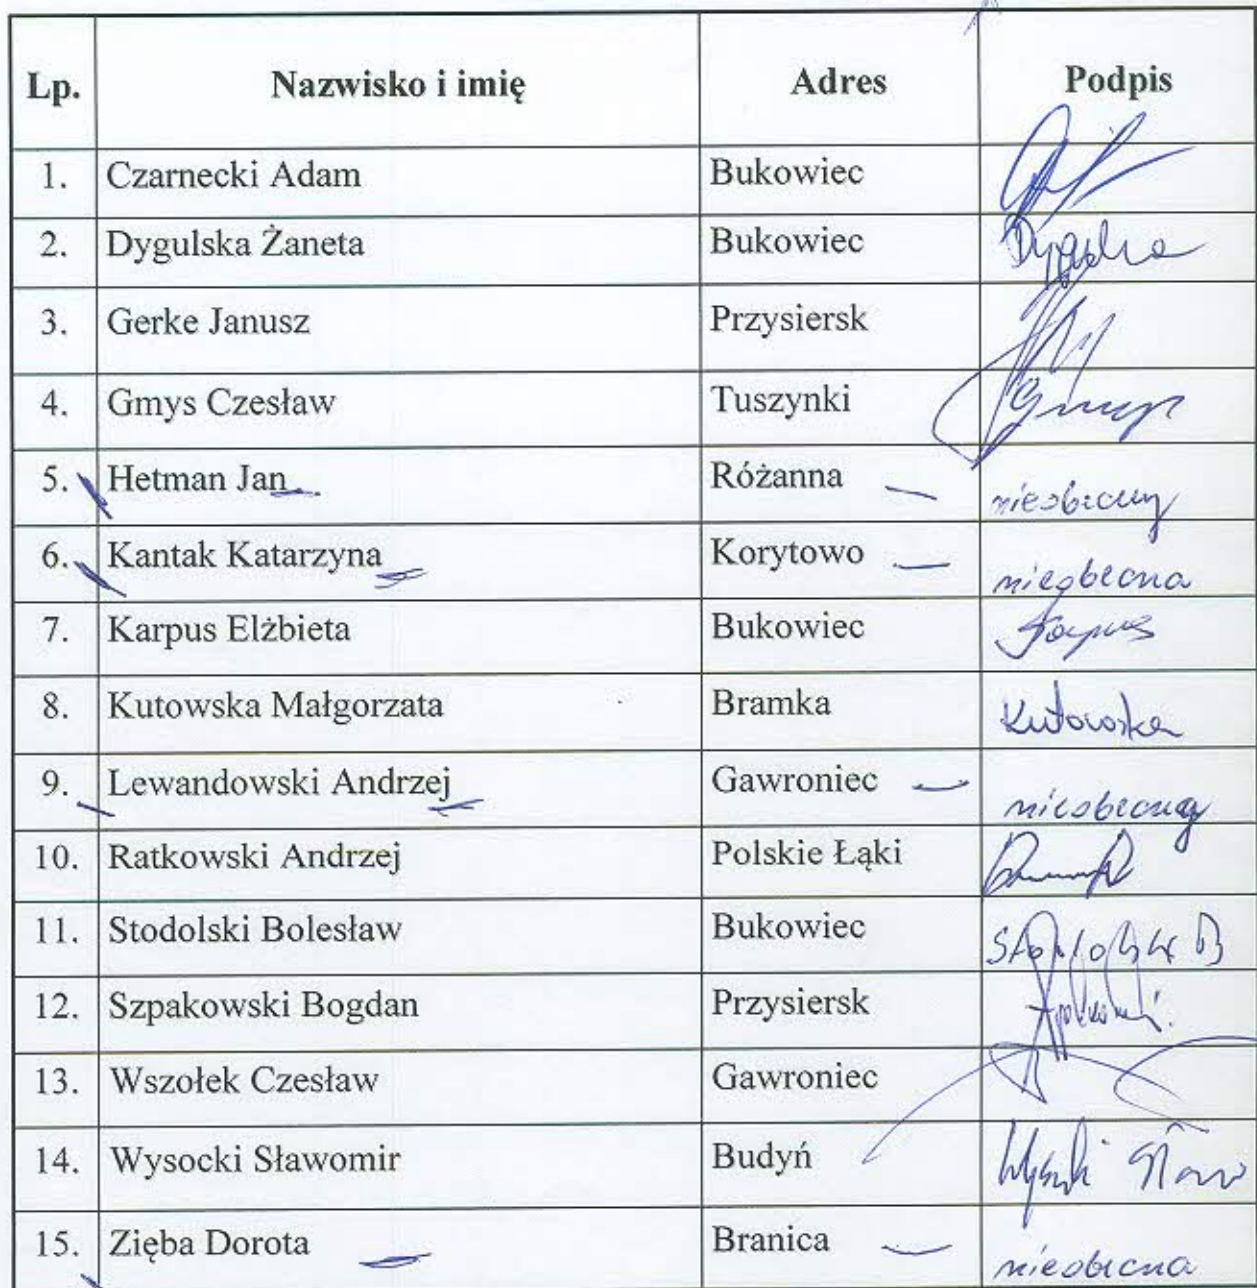 Lp. Nazwisko i imię Adres Podpis
1. Czarnecki Adam Bukowiec
2. Dygulska Żaneta Bukowiec Dygulska
3. Gerke Janusz Przysiersk
4. Gmys Czesław Tuszynki Gmys
5. Hetman Jan Różanna nieobecny
6. Kantak Katarzyna Korytowo nieobecna
7. Karpus Elżbieta Bukowiec Karpus
8. Kutowska Małgorzata Bramka Kutowska
9. Lewandowski Andrzej Gawroniec nieobecny
10. Ratkowski Andrzej Polskie Łąki
11. Stodolski Bolesław Bukowiec Stodolski B
12. Szpakowski Bogdan Przysiersk
13. Wszołek Czesław Gawroniec
14. Wysocki Sławomir Budyń
15. Zięba Dorota Branica nieobecna